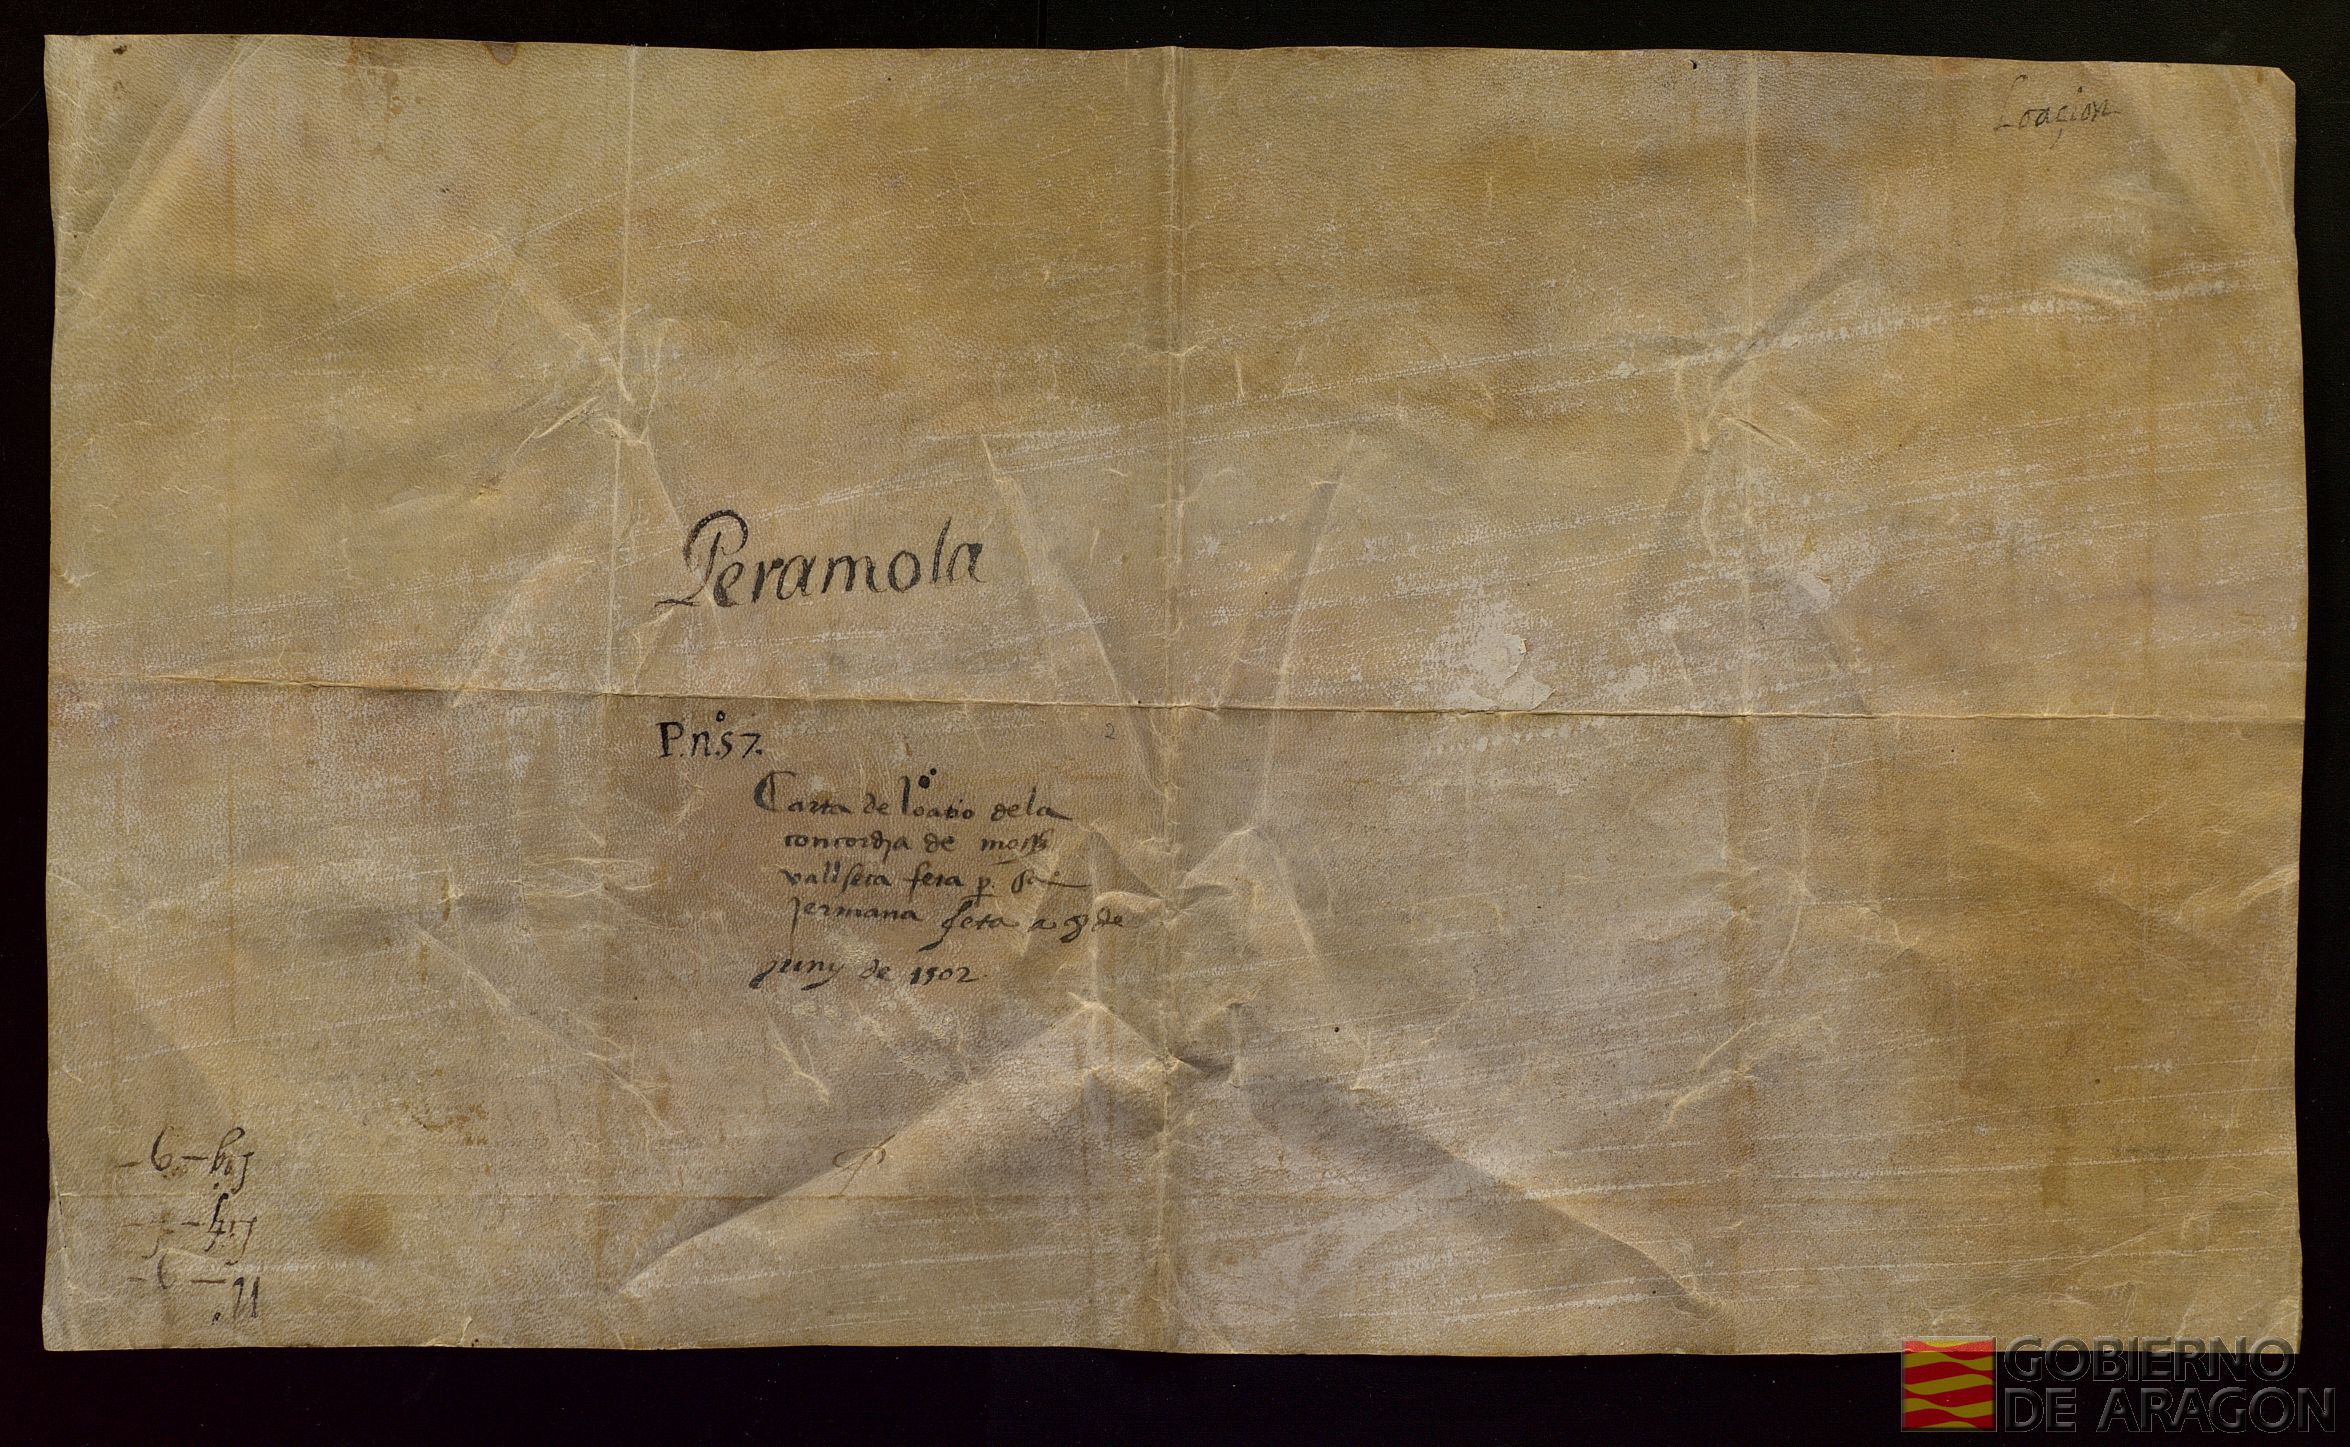 Loaçion
Peramola
P. nº 57.
2
Carta de loatio dela
concordia de moss
vallseca feta p. sa
jermana feta a 9 de
juny de 1502.
GOBIERNO
DE ARAGON